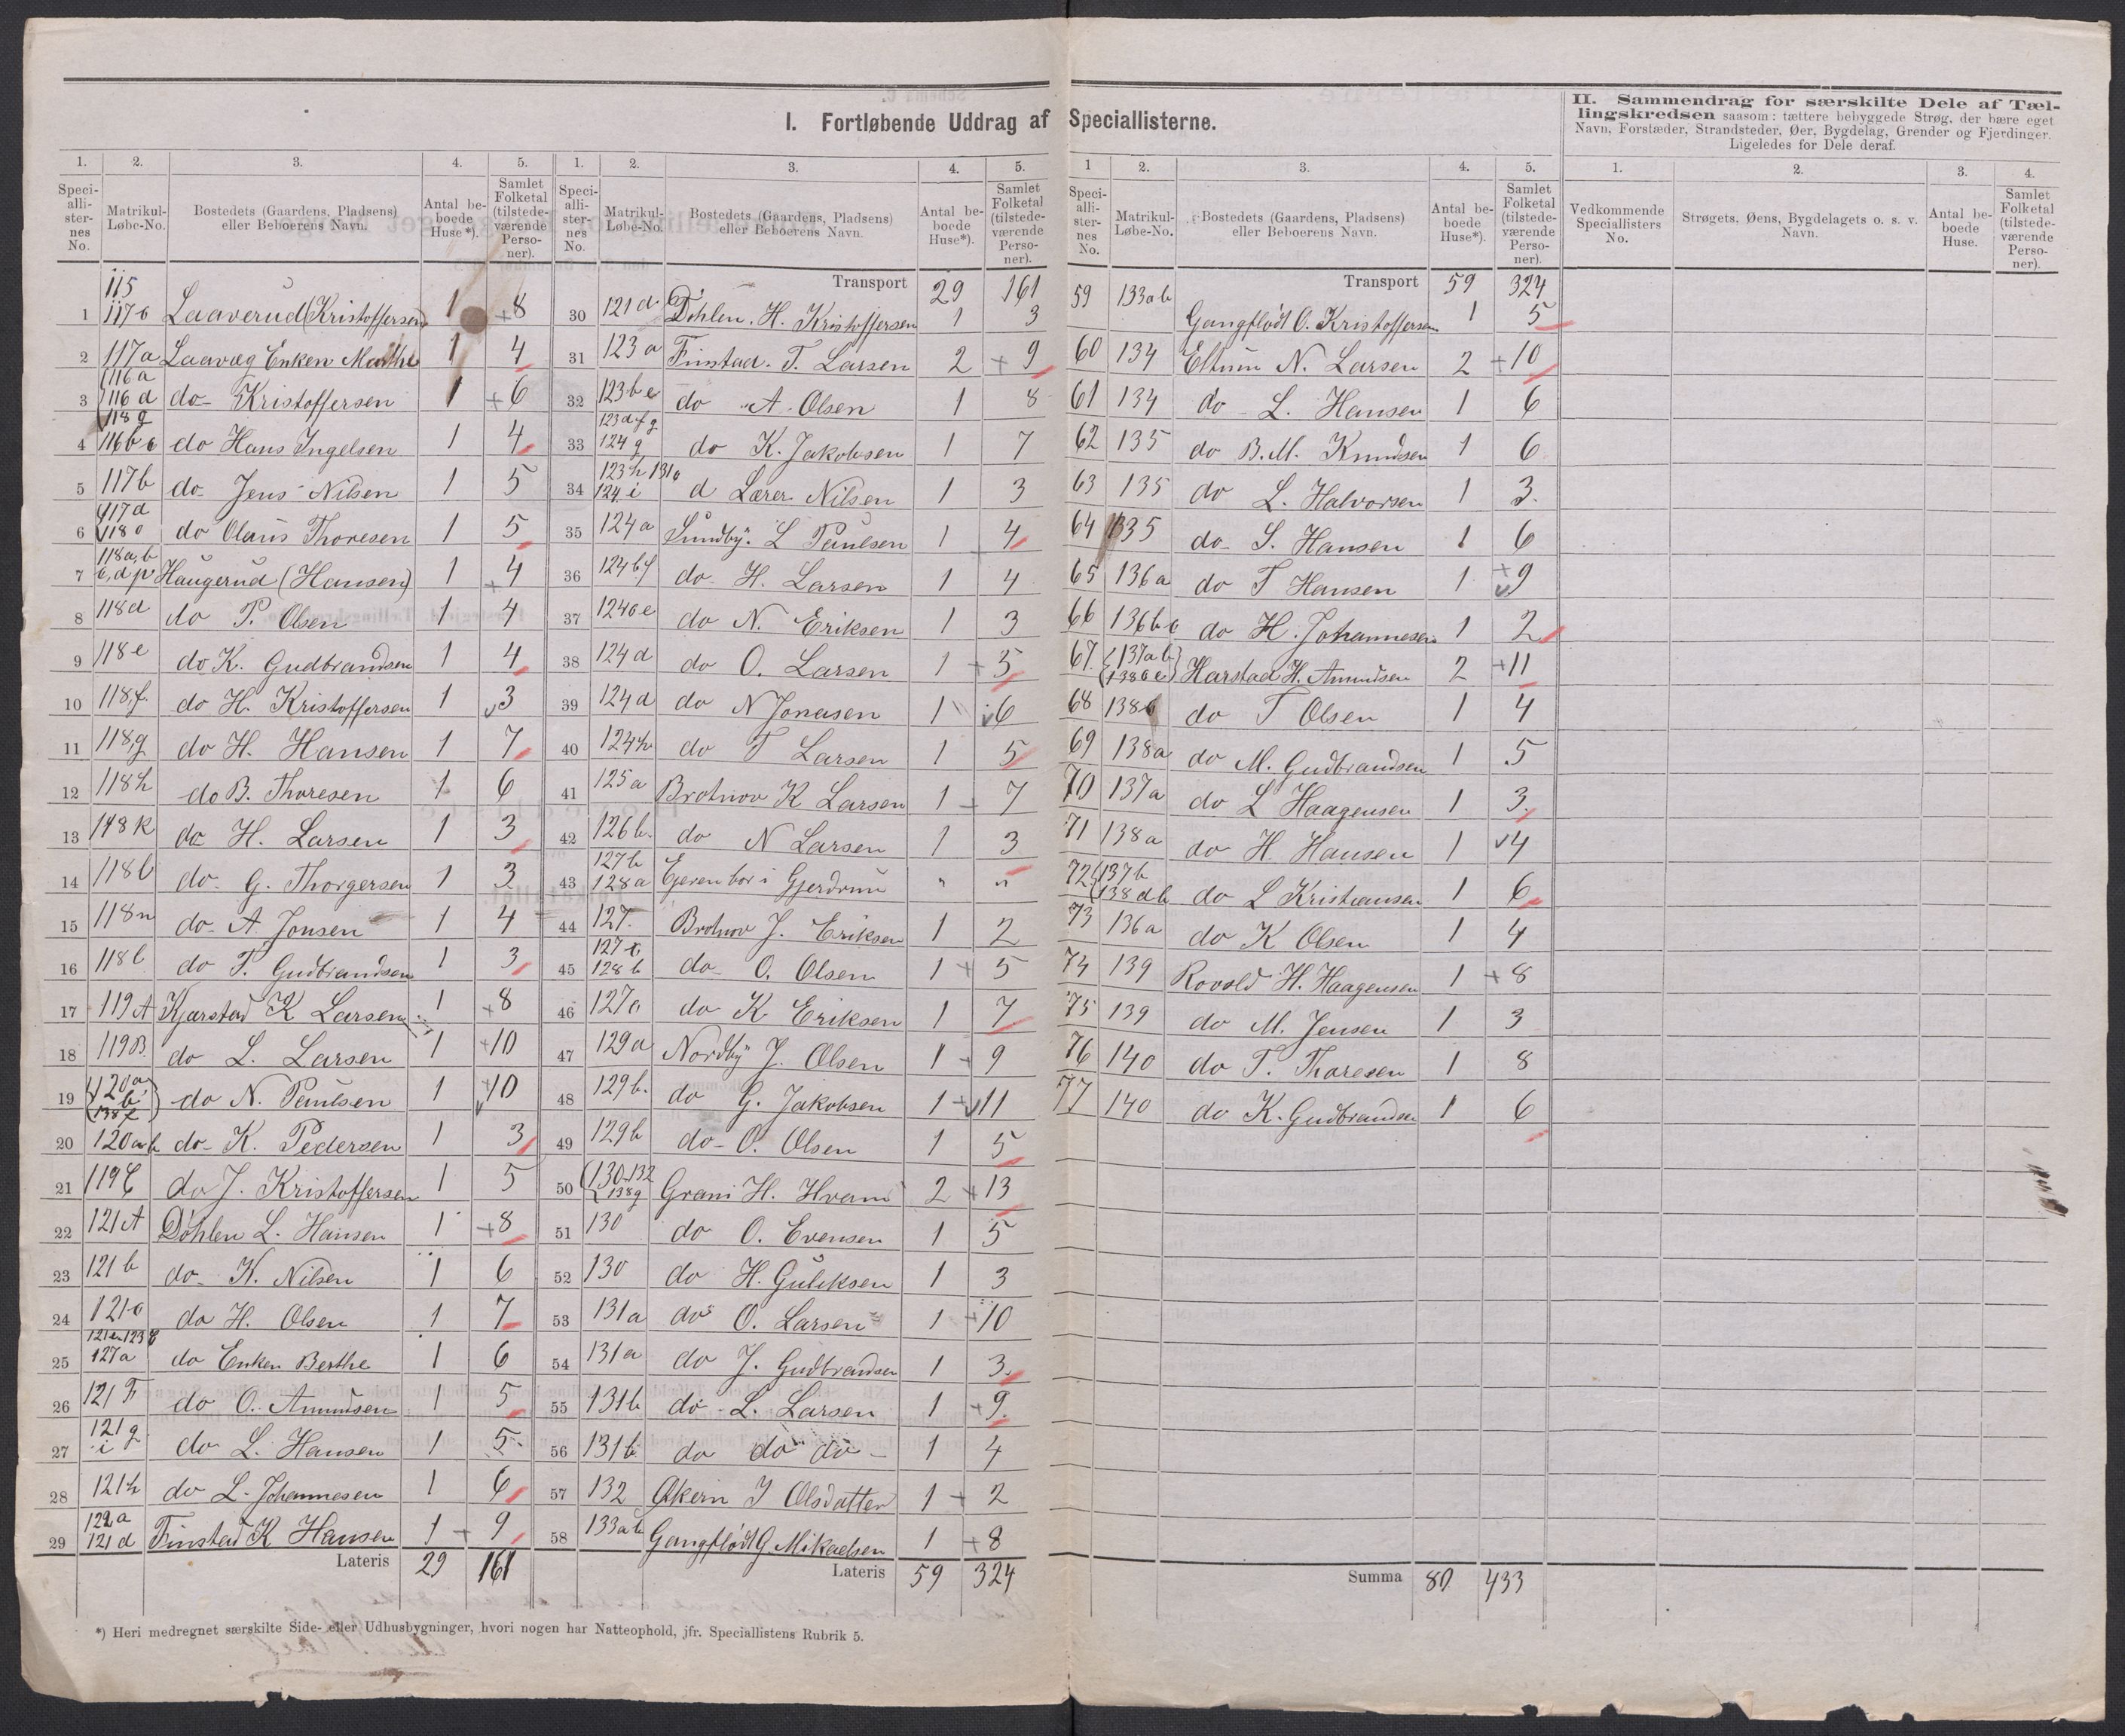 I. Fortløbende Uddrag af Speciallisterne.
II. Sammendrag for særskilte Dele af Tæl-
lingskredsen saasom: tættere bebyggede Strøg, der bære eget
Navn, Forstæder, Strandsteder, Øer, Bygdelag, Grender og Fjerdinger.
Ligeledes for Dele deraf.
1. 2. 3. 4. 5.
Speci-alli-ster-nes No. Matrikul-Løbe-No. Bostedets (Gaardens, Pladsens) eller Beboerens Navn. Antal be-boede Huse*). Samlet Folketal (tilstede-værende Perso-ner).
115
1 117c Laaverud (Kristoffersen) 1 +8
2 117a Laavæg Enken Marthe 1 4
116a
3 116d do Kristoffersen 1 +6
118g
4 116bc do Hans Ingelsen 1 4
5 117b do Jens Nilsen 1 5
117d
6 118o do Olaus Thoresen 1 5
118a,b
7 c,d,p Haugerud (Hansen) 1 +4
8 118d do P. Olsen 1 4
9 118e do K. Gudbrandsen 1 4
10 118f. do H. Kristoffersen 1 v3
11 118g do H. Hansen 1 7
12 118h do B. Thoresen 1 6
13 118k do H. Larsen 1 3
14 118l do G. Thorgersen 1 3
15 118n do A Jonsen 1 4
16 118l do T. Gudbrandsen 1 3
17 119A Kjærstad K Larsen 1 +8
18 119B do L. Larsen 1 +10
120a
19 b 138f do N. Paulsen 1 +10
20 120ab do K. Pedersen 1 3
21 119C do J. Kristoffersen 1 5
22 121A Döhlen L. Hansen 1 +8
23 121b do K. Nilsen 1 6
24 121c do H. Olsen 1 7
121e 123c
25 127a do Enken Berthe 1 6
26 121F do O. Amundsen 1 5
121g
27 i do L. Hansen 1 5
28 121h do L. Johannesen 1 6
122a
29 121d Finstad K Hansen 1 + 9
Lateris 29 161
1. 2. 3. 4. 5.
Speci-alli-ster-nes No. Matrikul-Løbe-No. Bostedets (Gaardens, Pladsens) eller Beboerens Navn. Antal be-boede Huse*). Samlet Folketal (tilstede-værende Perso-ner).
Transport 29 161
30 121d Döhlen. H. Kristoffersen 1 3
31 123a Finstad. T. Larsen 2 + 9
32 123be do A. Olsen 1 8
123dfg
33 124g do K. Jakobsen 1 7
123h 131c
34 124i d Lærer Nilsen 1 3
35 124a Sundby. L Paulsen 1 4
36 124bf do H. Larsen 1 4
37 124ce do N. Eriksen 1 3
38 124d do O. Larsen 1 + 5
39 124d do N Jonasen 1 v6
40 124h do T Larsen 1 5
41 125a Brotnov K Larsen 1 + 7
42 126b. do N Larsen 1 3
127b
43 128a Ejeren bor i Gjerdrum " "
44 127. Brotnov J. Eriksen 1 2
127c
45 128b do O. Olsen 1 + 5
46 127c do K Eriksen 1 7
47 129a Nordby J. Olsen 1 + 9
48 129b. do G. Jakobsen 1 +v11
49 129b do O. Olsen 1 5
130-132
50 138g Grani H. Hvam 2 +13
51 130 do O. Evensen 1 5
52 130 do H. Guliksen 1 3
53 131a do O. Larsen 1 +10
54 131a do J. Gudbrandsen 1 3
55 131b do L. Larsen 1 +9
56 131b do do do 1 4
57 132 Akern I Olsdatter 1 + 2
58 133ab Gangflödt G. Mikaelsen 1 +8
Lateris 59 324
1 2. 3. 4. 5.
Speci-alli-ster-nes No. Matrikul-Løbe-No. Bostedets (Gaardens, Pladsens) eller Beboerens Navn. Antal be-boede Huse*). Samlet Folketal (tilstede-værende Perso-ner).
Transport 59 324
59 133ab Gangflödt O. Kristoffersen 1 5
60 134 Eltun N. Larsen 2 +10
61 134 do L. Hansen 1 6
62 135 do B. M. Knudsen 1 6
63 135 do L. Halvorsen 1 3.
64 135 do S. Hansen 1 6
65 136a do T Hansen 1 +v9
66 136bc do H. Johannesen 1 2
67 137ab 138ce Harstad H. Amundsen 2 +11
68 138c do T Olsen 1 4
69 138a do M. Gudbrandsen 1 5
70 137a do L Haagensen 1 3
71 138a do H Hansen 1 v4
72 137b 138db do L Kristiansen 1 6
73 136a do K Olsen 1 4
74 139 Rovold H. Haagensen 1 +8
75 139 do M. Jensen 1 3
76 140 do T. Thoresen 1 8
77 140 do K. Gudbrandsen 1 6
Summa 80 433
1. 2. 3. 4.
Vedkommende Speciallisters No. Strøgets, Øens, Bygdelagets o. s. v. Navn. Antal be-boede Huse. Samlet Folketal (tilstede-værende Perso-ner).
*) Heri medregnet særskilte Side- eller Udhusbygninger, hvori nogen har Natteophold, jfr. Speciallistens Rubrik 5.